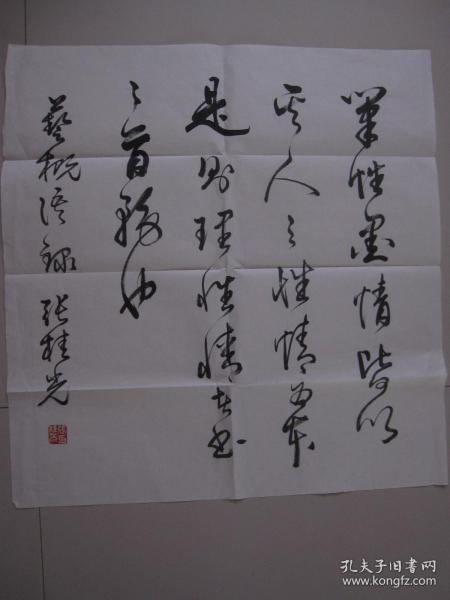 笔性墨情皆以
其人之性情为本
是则理性情者书
之首务也
艺概语录 张桂光
孔夫子旧书网
www.kongfz.com